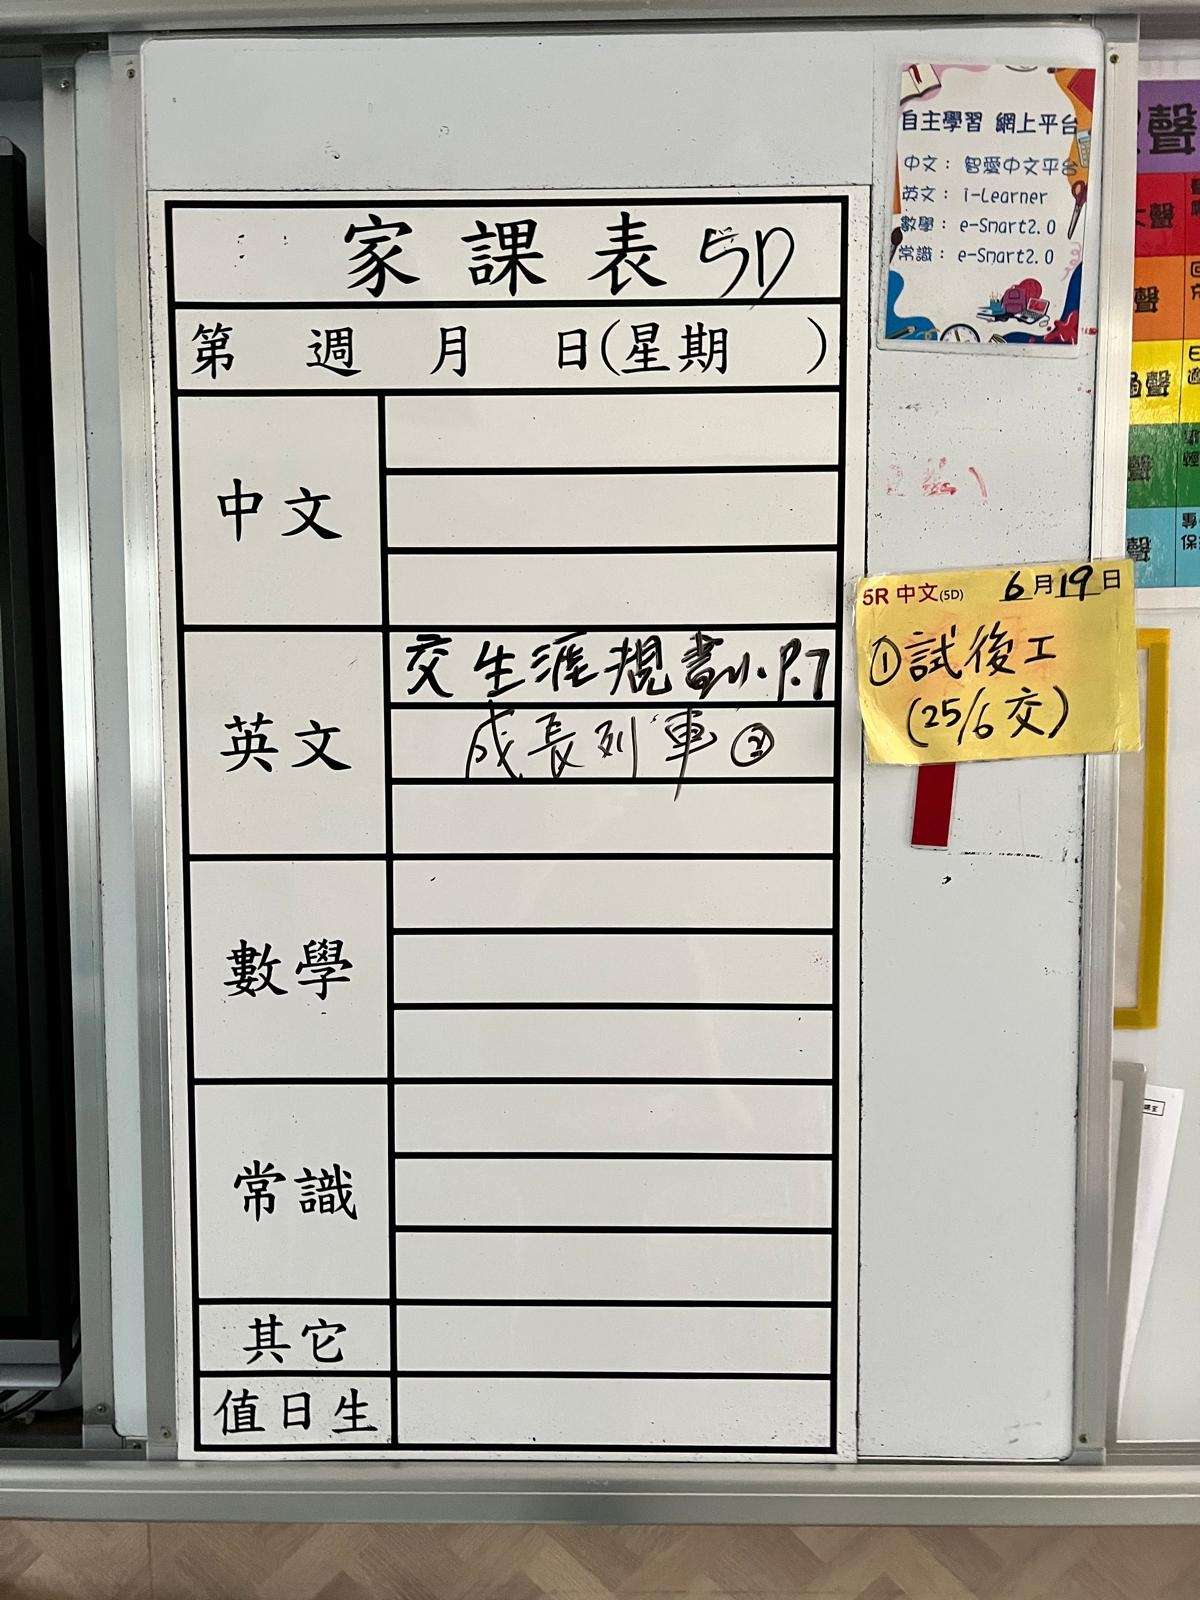 家課表 5D
第 週 月 日(星期 )
中文
英文
交生涯規劃小.P.7
成長列車②
數學
常識
其它
值日生
自主學習 網上平台
中文： 智愛中文平台
英文： i-Learner
數學： e-Smart2.0
常識： e-Smart2.0
5R 中文(5D) 6月19日
①試後工
(25/6交)
大聲